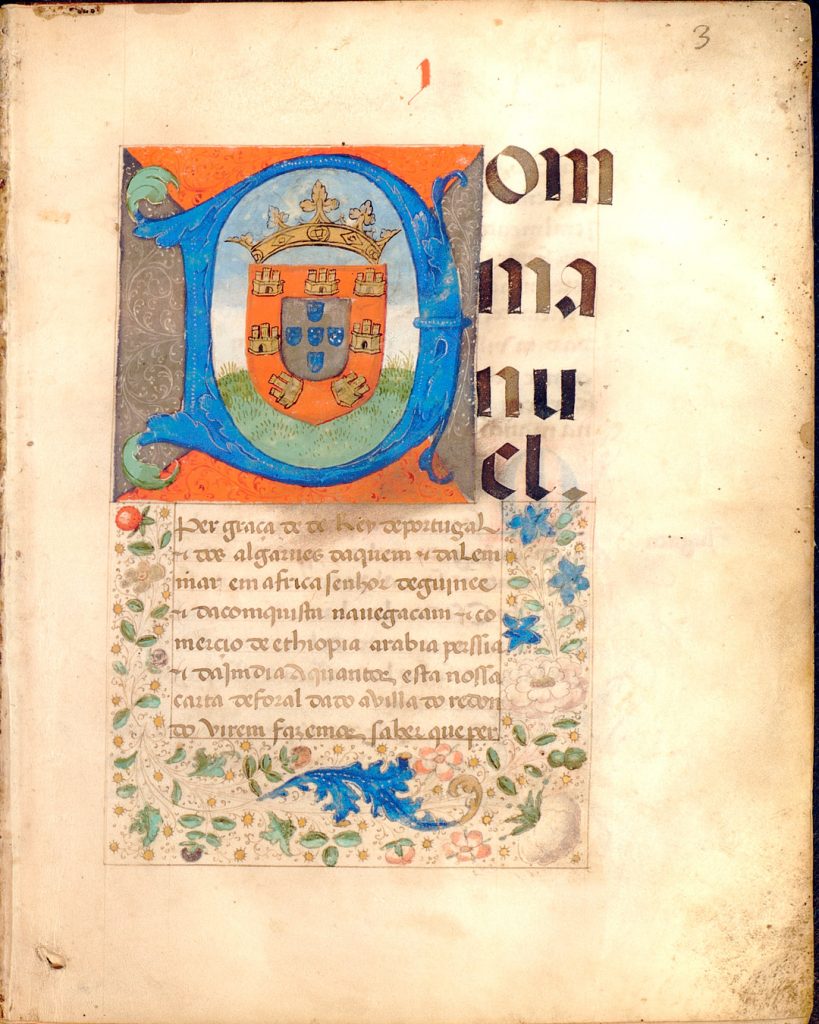 3
1
Dom
ma
nu
el.
Per graça de ds Rey de portugal
⁊ dos algarues daquem ⁊ dalem
mar em africa senhor de guinee
⁊ da comquista nauegacam ⁊ co
mercio de ethiopia arabia perssia
⁊ da Jmdia A quantos esta nossa
carta de foral dado a villa do redon
do virem fazemos saber que per